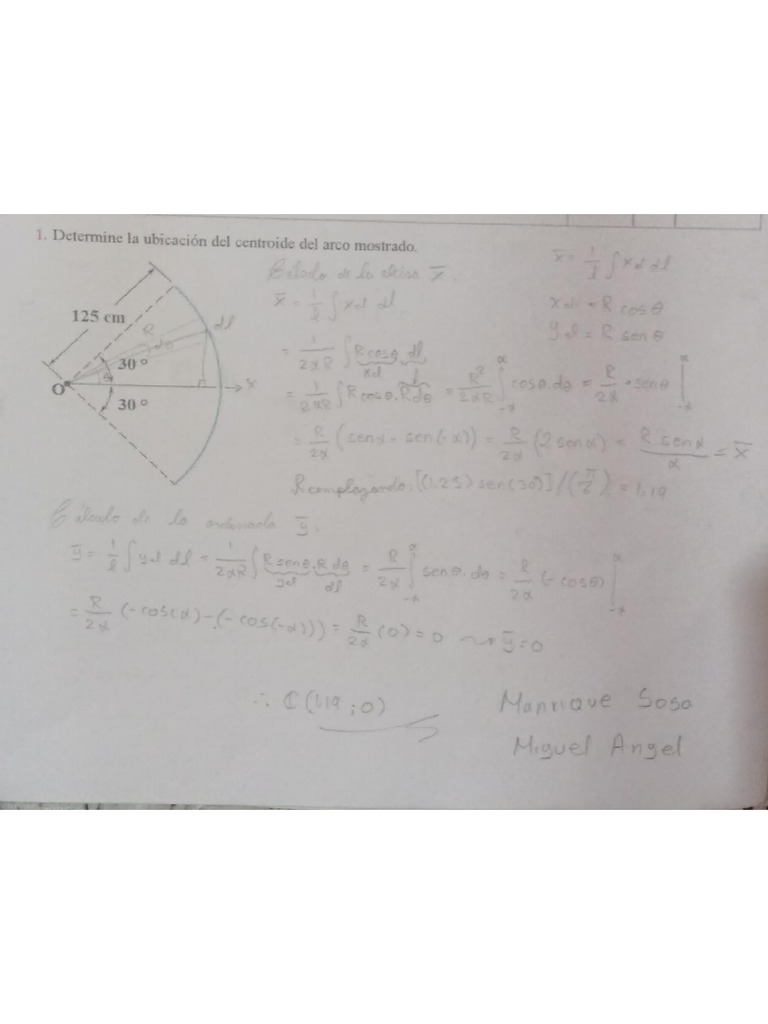 1. Determine la ubicación del centroide del arco mostrado.
125 cm
R
dl
dθ
30 °
θ
O
x
30 °
x̄ = 1/l ∫ xel dl
xel = R cosθ
yel = R senθ
Cálculo de la x̄.
x̄ = 1/l ∫ xel dl
= 1/2αR ∫ Rcosθ dl
xel
= ∫ R cosθ. Rdθ = R²/2αR ∫ cosθ.dθ = R/2α · senθ |
= R/2α (senα - sen(-α)) = R/2α (2senα) = R senα/α = x̄
Reemplazando: [(1,25) sen(30)]/(π/6) = 1,19
Cálculo de la ordenada ȳ.
ȳ = 1/l ∫ yel dl = 1/2αR ∫ R senθ. R dθ = R/2α ∫ senθ.dθ = R/2α (-cosθ) |
yel dl
= R/2α (-cos(α) - (-cos(-α))) = R/2α (0) = 0 ⇝ ȳ = 0
∴ C (1,19 ; 0)
Manrique Sosa
Miguel Angel